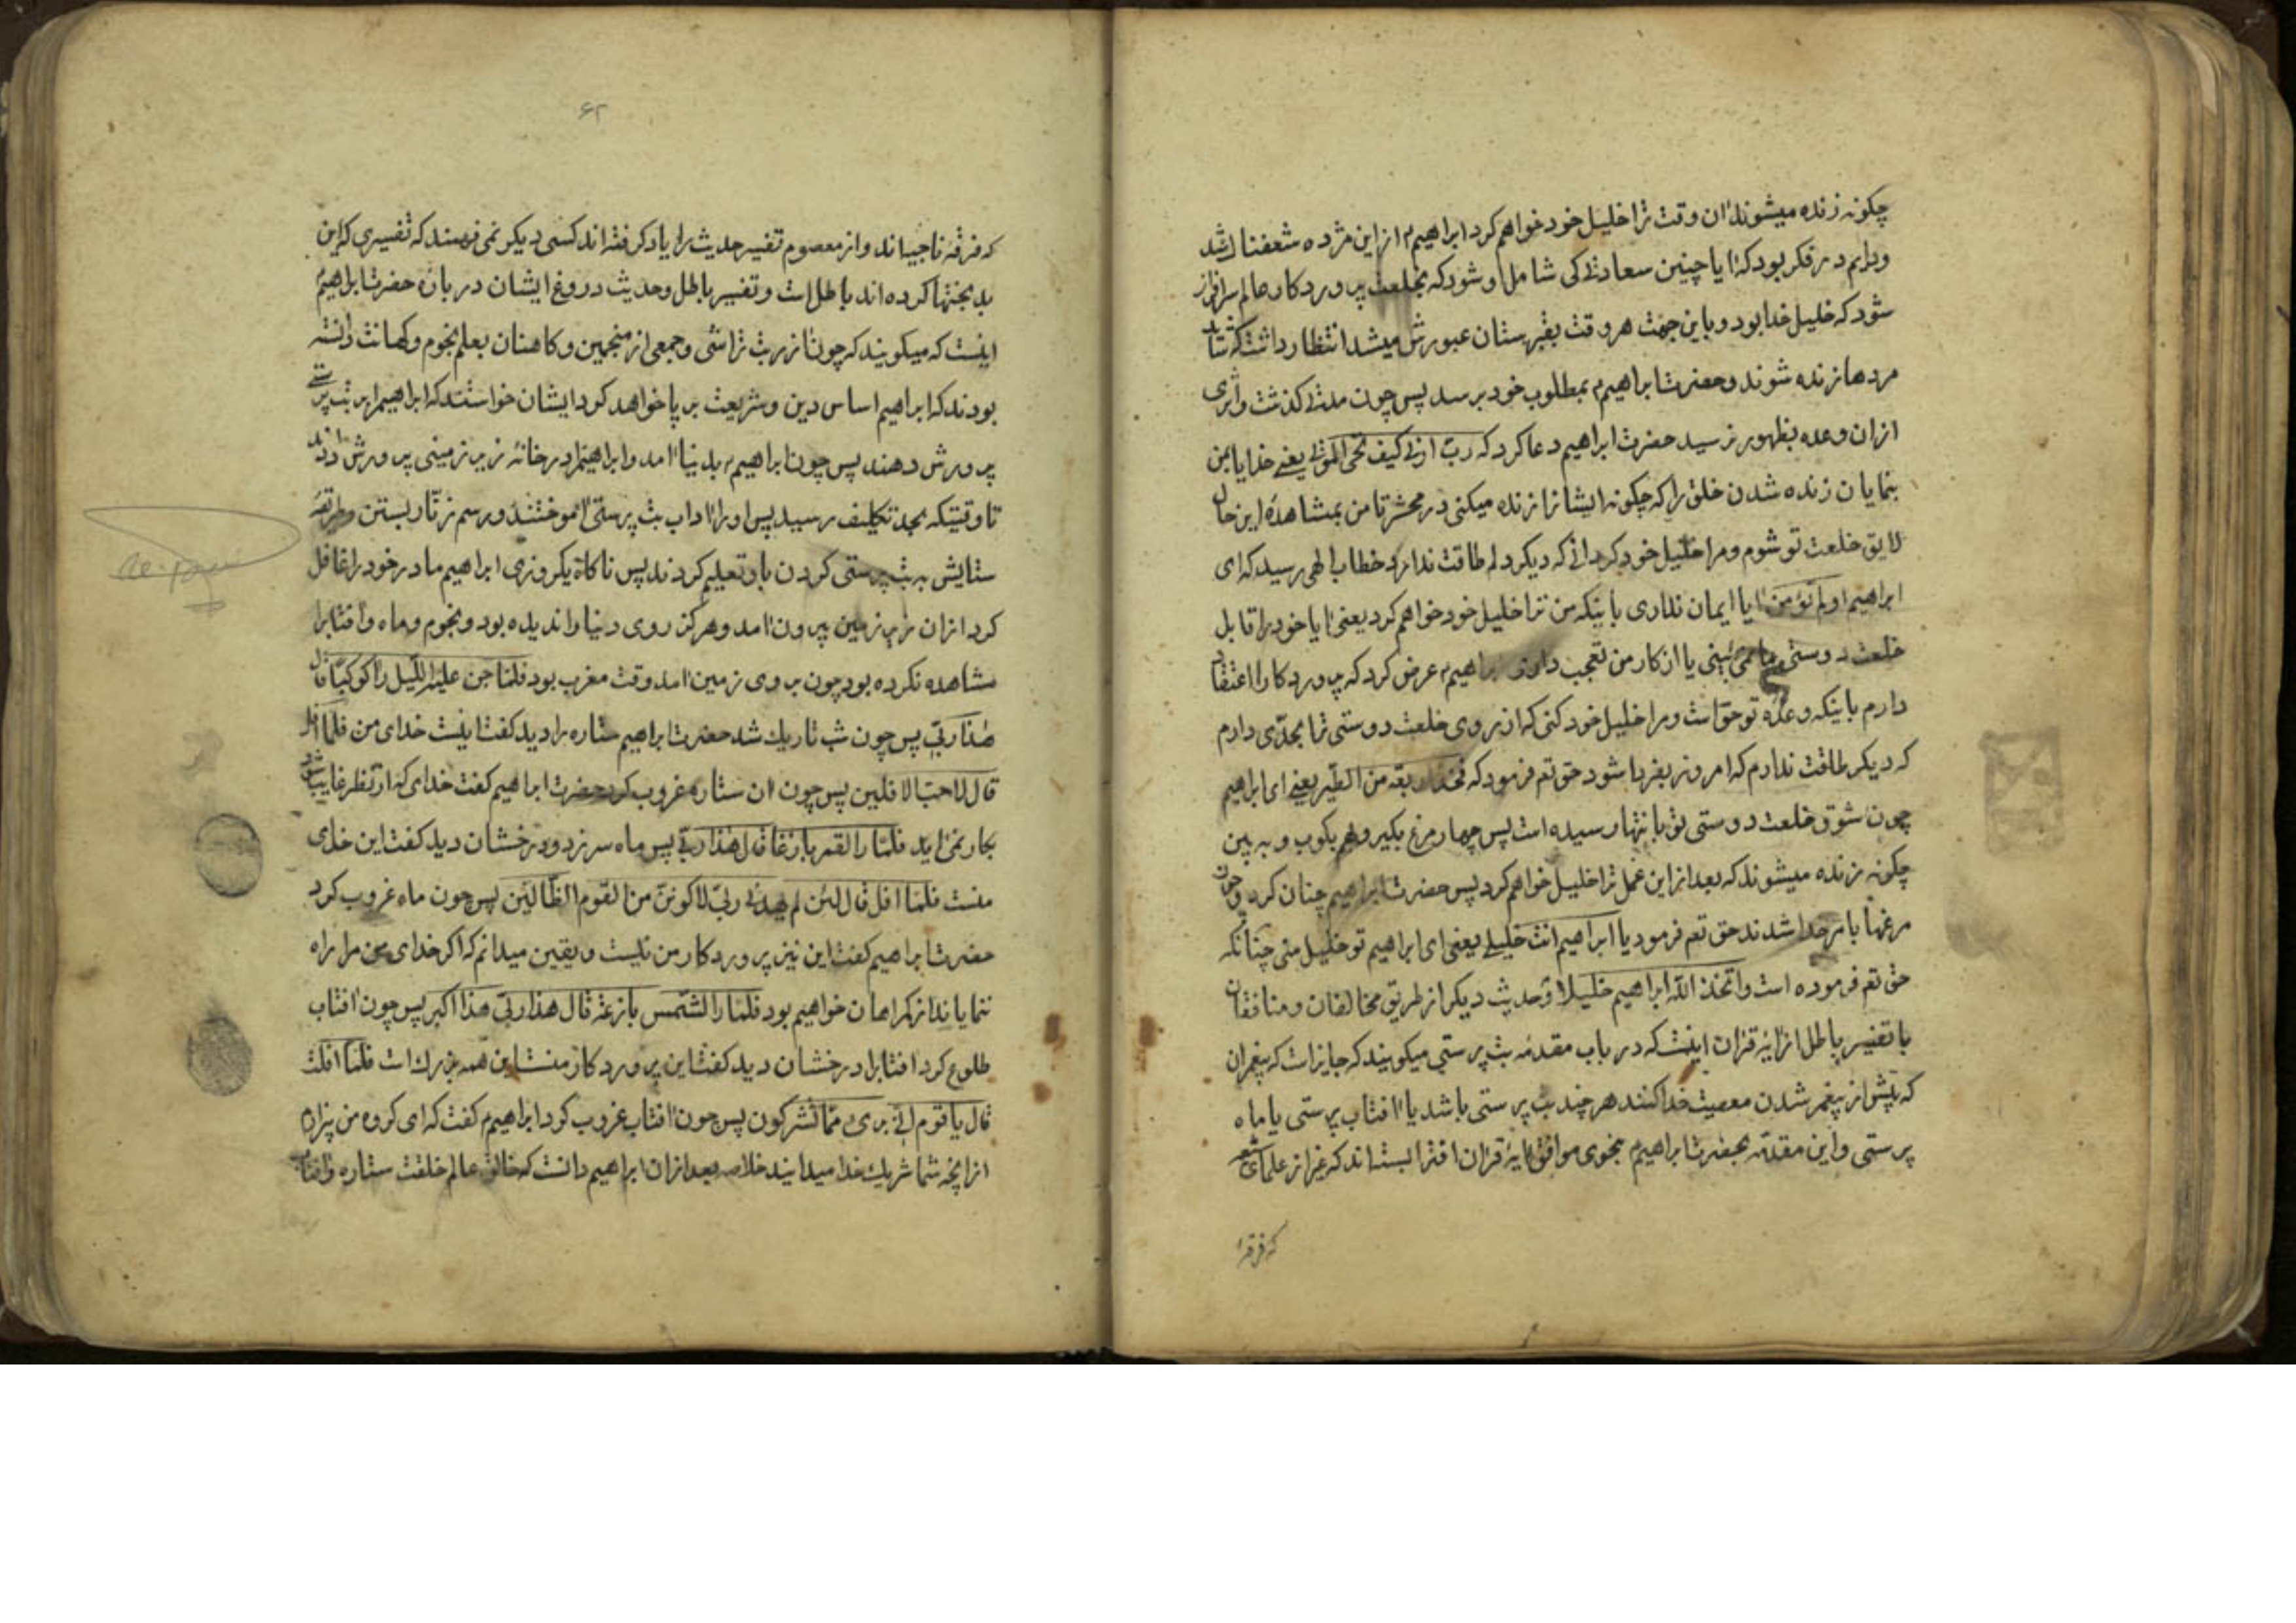 چکونه زنده میشوند ان وقت ترا خلیل خود خواهم کرد ابراهیم م از این مژده شعفناک شد
و دایم در فکر بود که ایا چنین سعادتی کی شامل او شود که بخلعت پروردکار عالم سرافراز
شود که خلیل خدا بود و باین جهت هر وقت بقبرستان عبورش میشد انتظار داشت که شاید
مردها زنده شوند و حضرت ابراهیم م بمطلوب خود برسد پس چون مدتی کذشت و اثری
از ان وعده بظهور نرسید حضرت ابراهیم دعا کرد که رب ارنی کیف تحی الموتی یعنی خدایا بمن
بنمایان زنده شدن خلق را که چکونه ایشانرا زنده میکنی در محشر تا من بمشاهدهٔ این حال
لایق خلعت تو شوم و مرا خلیل خود کردانی که دیکر دلم طاقت ندارد خطاب الهی رسید که ای
ابراهیم اولم تؤمن ایا ایمان نداری باینکه من ترا خلیل خود خواهم کرد یعنی ایا خود را قابل
خلعت دوستی ما نمی بینی یا از کار من تعجب داری ابراهیم م عرض کرد که پروردکارا اعتقاد
دارم باینکه وعدهٔ تو حق است و مرا خلیل خود کنی که از روی خلعت دوستی ترا بحدّی دارم
که دیکر طاقت ندارم که امروز بفردا شود حق تعم فرمود که فخذ اربعة من الطیر یعنی ای ابراهیم
چون شوق خلعت دوستی تو بانتها رسیده است پس چهار مرغ بکیر و بهم بکوب و به بین
چکونه زنده میشوند که بعد از این عمل ترا خلیل خواهم کرد پس حضرت ابراهیم چنان کرد و چون
مرغها بامر خدا شدند حق تعم فرمود یا ابراهیم انت خلیلی یعنی ای ابراهیم تو خلیل منی چنانکه
حق تعم فرموده است واتخذ الله ابراهیم خلیلا و حدیث دیکر از طریق مخالفان و منافقان
با تفسیر باطل از ایهٔ قران اینست که در باب مقدمهٔ بت پرستی میکویند که جایز است که پیغمبران
که پیش از پیغمبر شدن معصیت خدا کنند هر چند بت پرستی باشد یا افتاب پرستی یا ماه
پرستی و این مقدمّه بحضرت ابراهیم م بنحوی موافق ایهٔ قران افترا بسته اند که غیر از علمای شیعه
که فرقهٔ
۶۲
که فرقهٔ ناجیه اند و از معصوم تفسیر حدیث را یاد کرفته اند کسی دیکر نمی فهمند که تفسیری که این
بدبختها کرده اند باطل است و تفسیر باطل و حدیث دروغ ایشان در بارهٔ حضرت ابراهیم
اینست که میکویند که چون ازر بت تراشی و جمعی از منجمین و کاهنان بعلم نجوم و کهانت دانسته
بودند که ابراهیم اساس دین و شریعت بر پا خواهد کرد ایشان خواستند که ابراهیم را بر بت پرستی
پرورش دهند پس چون ابراهیم م بدنیا امد و ابراهیم را در خانهٔ زیر زمینی پرورش دادند
تا وقتیکه بحد تکلیف رسید پس او را اداب بت پرستی اموختند و رسم زنّار بستن و طریقهٔ
ستایش به بت پرستی کردن باو تعلیم کردند پس ناکاه یکروزی ابراهیم مادر خود را غافل
کرد از ان زیر زمین بیرون امد و هرکز روی دنیا را ندیده بود و نجوم و ماه و افتابرا
مشاهده نکرده بود چون بروی زمین امد وقت مغرب بود فلمّا جن علیه اللّیل رأ کوکبًا قال
هذا ربّی پس چون شب تاریک شد حضرت ابراهیم ستاره را دید کفت اینست خدای من فلمّا افل
قال لا احب الافلین پس چون ان ستاره غروب کرد حضرت ابراهیم کفت خدای که از نظر غایب شود
بکار نمی اید فلمّا را القمر بازغا قال هذا ربّی پس ماه سر زد و درخشان دید کفت این خدای
منست فلمّا افل قال لئن لم یهدنی ربّی لاکوننّ من القوم الظالّین پس چون ماه غروب کرد
حضرت ابراهیم کفت این نیز پروردکار من نیست و یقین میدانم که اکر خدای من مرا راه
ننمایاند از کمراهان خواهیم بود فلمّا را الشّمس بازغة قال هذا ربّی هذا اکبر پس چون افتاب
طلوع کرد افتابرا درخشان دید کفت این پروردکار منست این همه بزرک است فلمّا افلت
قال یا قوم انّی بریء ممّا تشرکون پس چون افتاب غروب کرد ابراهیم م کفت که ای کروه من بیزارم
از انچه شما شریک خدا میدانید خلاصه بعد از ان ابراهیم دانست که خالق عالم خلقت ستاره و افتاب